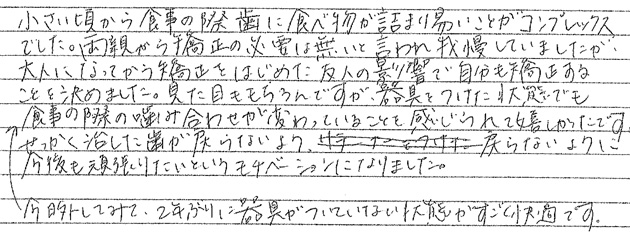 小さい頃から食事の際歯に食べ物が詰まり易いことがコンプレックス
でした。両親から矯正の必要は無いと言われ我慢していましたが、
大人になってから矯正をはじめた友人の影響で自分も矯正する
ことを決めました。見た目ももちろんですが、器具をつけた状態でも
食事の際の噛み合わせが変わっていることを感じられて嬉しかったです
せっかく治した歯が戻らないよう、戻らないように
今後も頑張りたいというモチベーションになりました。
今日外してみて、2年ぶりに器具がついていない状態がすごく快適です。